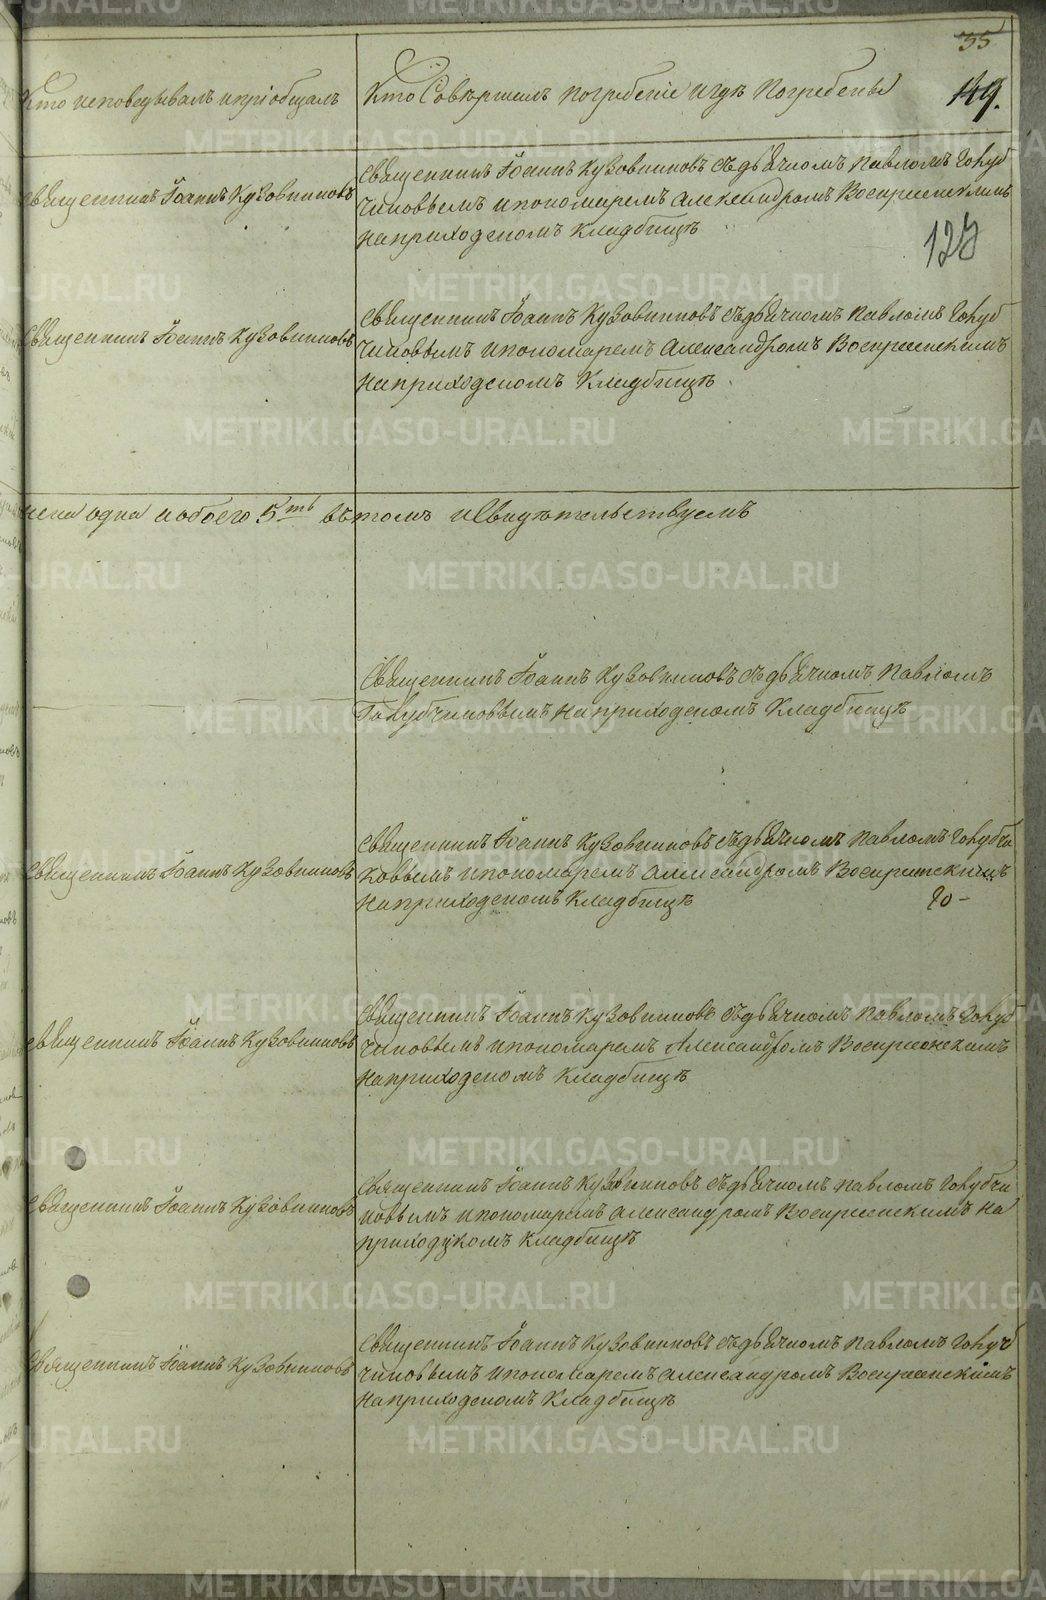 35
149.
Кто исповедывалъ и пріобщалъ
Кто Совершалъ погребеніе и гдѣ Погребены
Священникъ Іоаннъ Кузовниковъ
Священникъ Іоаннъ Кузовниковъ съ дьячкомъ Павломъ Голуб
чиковымъ и пономаремъ Александромъ Воскресенскимъ
на приходскомъ кладбищѣ
127
Священникъ Іоаннъ Кузовниковъ
Священникъ Іоаннъ Кузовниковъ съ дьячкомъ Павломъ Голуб
чиковымъ и пономаремъ Александромъ Воскресенскимъ
на приходскомъ Кладбищѣ
одна и обоего 5ть въ томъ и Свидѣтельствуемъ
Священникъ Іоаннъ Кузовниковъ съ дьячкомъ Павломъ
Голубчиковымъ на приходскомъ Кладбищѣ
Священникъ Іоаннъ Кузовниковъ
Священникъ Іоаннъ Кузовниковъ съ дьячкомъ Павломъ Голубчи
ковымъ и пономаремъ Александромъ Воскресенскимъ
на приходскомъ Кладбищѣ
Священникъ Іоаннъ Кузовниковъ
Священникъ Іоаннъ Кузовниковъ съ дьячкомъ Павломъ Голуб
чиковымъ и пономаремъ Александромъ Воскресенскимъ
на приходскомъ Кладбищѣ
Священникъ Іоаннъ Кузовниковъ
Священникъ Іоаннъ Кузовниковъ съ дьячкомъ Павломъ Голубчи
ковымъ и пономаремъ Александромъ Воскресенскимъ на
приходскомъ кладбищѣ
Священникъ Іоаннъ Кузовниковъ
Священникъ Іоаннъ Кузовниковъ съ дьячкомъ Павломъ Голуб
чиковымъ и пономаремъ Александромъ Воскресенскимъ
на приходскомъ Кладбищѣ
METRIKI.GASO-URAL.RU